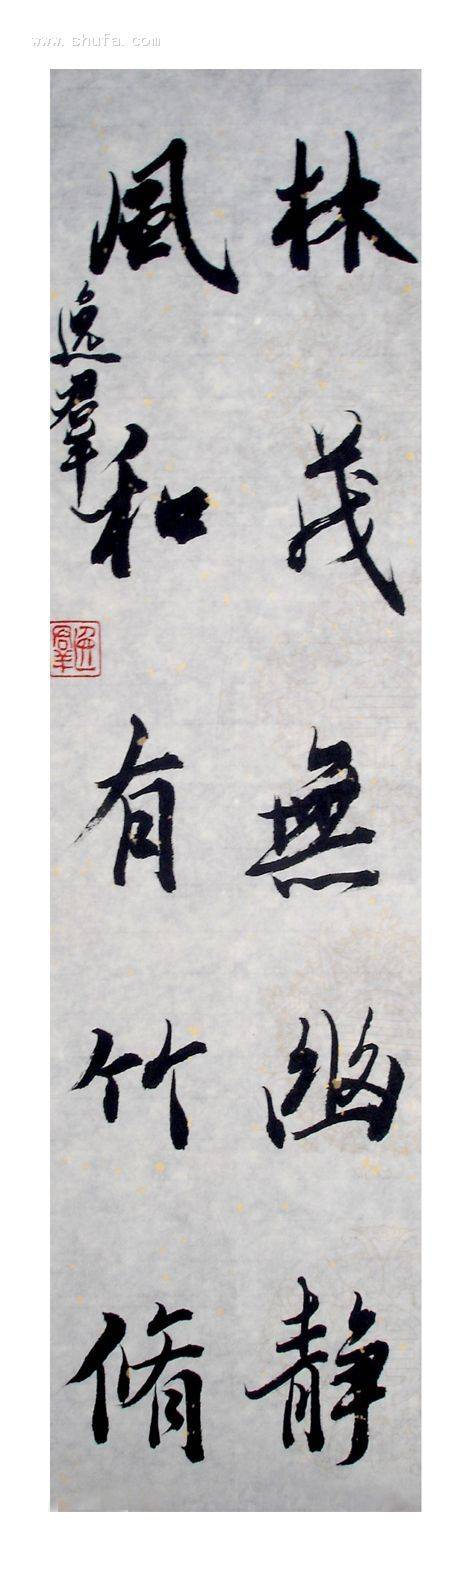 www.shufa.com
林茂無幽静
風和有竹脩
逸羣
逸羣